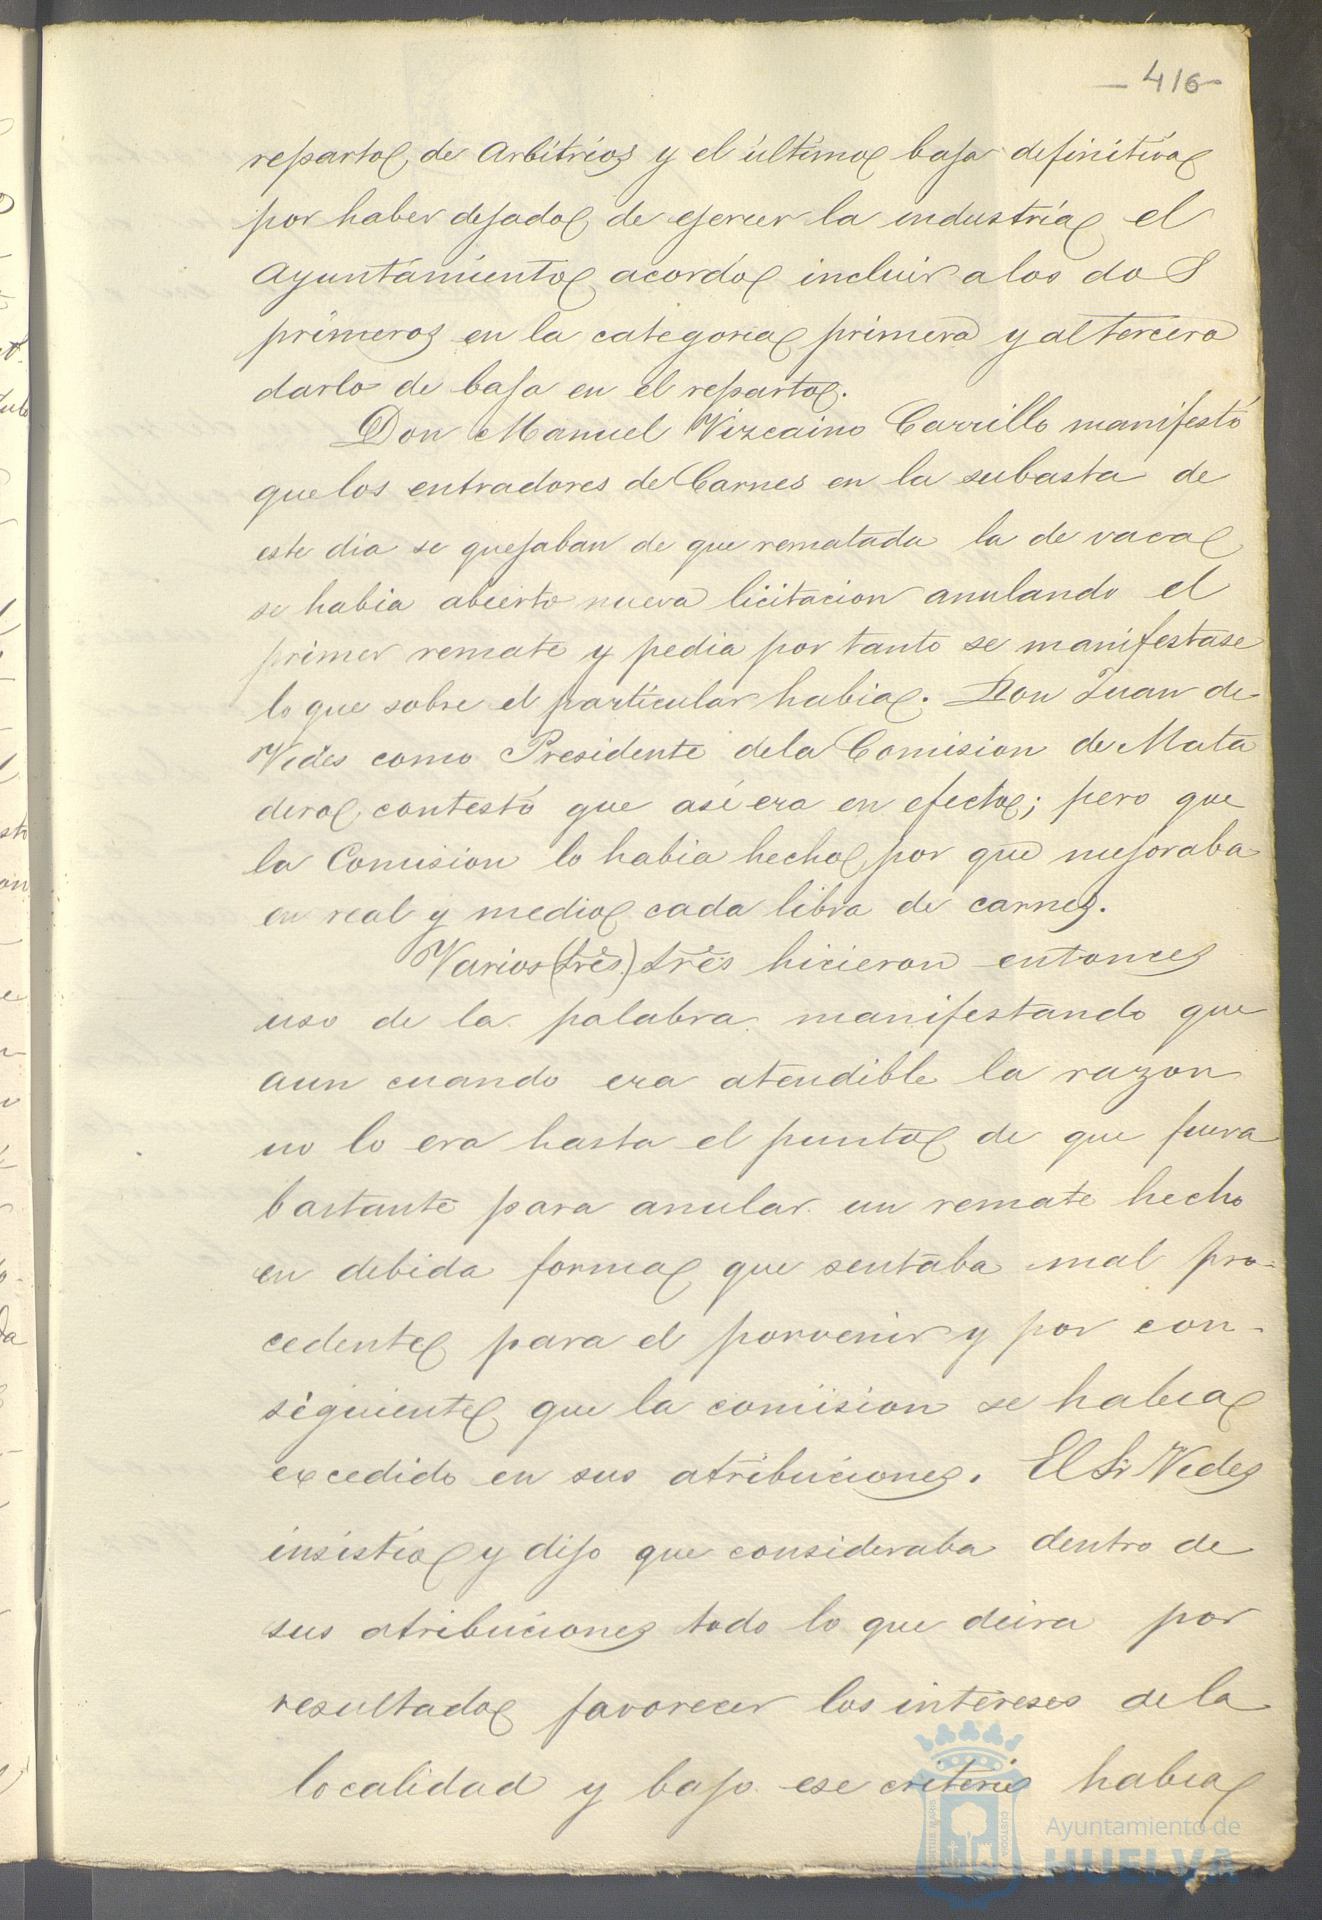 - 416 -
reparto, de Arbitrios y el último baja definitiva
por haber dejado de ejercer la industria el
Ayuntamiento acordó incluir a los dos
primeros en la categoria primera y al tercero
darlo de baja en el reparto.
Don Manuel Vizcaino Carrillo manifestó
que los entradores de Carnes en la subasta de
este dia se quejaban de que rematada la de vaca
se habia abierto nueva licitacion anulando el
primer remate y pedia por tanto se manifestase
lo que sobre el particular habia. Don Juan de
Vides como Presidente de la Comision de Mata
dero, contestó que asi era en efecto; pero que
la Comision lo habia hecho por que mejoraba
en real y medio cada libra de carnes.
Varios (tres) tres hicieron entonces
uso de la palabra manifestando que
aun cuando era atendible la razon
no lo era hasta el punto de que fuera
bastante para anular un remate hecho
en debida forma que sentaba mal pro-
cedente para el porvenir y por con-
siguiente que la comision se habia
excedido en sus atribuciones. El Sr Vides
insistio y dijo que consideraba dentro de
sus atribuciones todo lo que diera por
resultado favorecer los intereses de la
localidad y bajo ese criterio habia
Ayuntamiento de
HUELVA